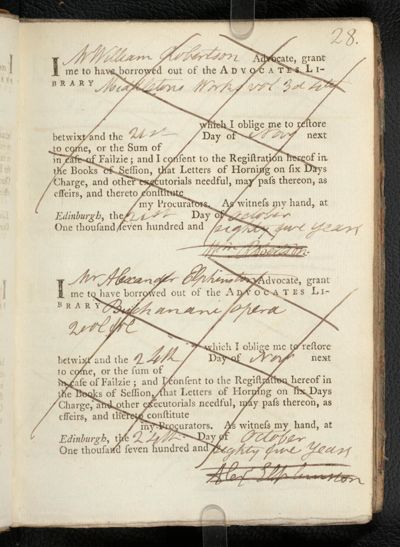 28.
I Mr William Robertson Advocate, grant
me to have borrowed out of the ADVOCATES LI-
BRARY Works vol 3d
which I oblige me to reſtore
betwixt and the 21st Day of Novr next
to come, or the Sum of
in caſe of Failzie; and I conſent to the Regiſtration hereof in
the Books of Seſſion, that Letters of Horning on ſix Days
Charge, and other executorials needful, may paſs thereon, as
effeirs, and thereto conſtitute
my Procurators. As witneſs my hand, at
Edinburgh, the 21st Day of October
One thouſand ſeven hundred and eighty five years
Wm Robertson
I Mr Alexander Elphinston Advocate, grant
me to have borrowed out of the ADVOCATES LI-
BRARY Buchanani opera
2 vol
which I oblige me to reſtore
betwixt and the 24th Day of Novr next
to come, or the ſum of
in caſe of Failzie; and I conſent to the Regiſtration hereof in
the Books of Seſſion, that Letters of Horning on ſix Days
Charge, and other executorials needful, may paſs thereon, as
effeirs, and thereto conſtitute
my Procurators. As witneſs my hand, at
Edinburgh, the 24th Day of October
One thouſand ſeven hundred and eighty five years
Alex Elphinston